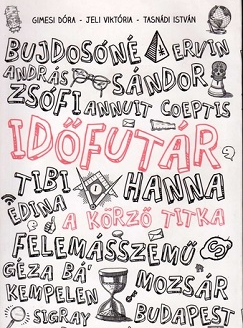 GIMESI DÓRA - JELI VIKTÓRIA - TASNÁDI ISTVÁN
BUJDOSÓNÉ ERVIN
ANDRÁS SÁNDOR
ZSÓFI ANNUIT COEPTIS
IDŐFUTÁR
TIBI HANNA
EDINA
A KÖRZŐ TITKA
FELEMÁSSZEMŰ
GÉZA BÁ' MOZSÁR
KEMPELEN
SIGRAY BUDAPEST